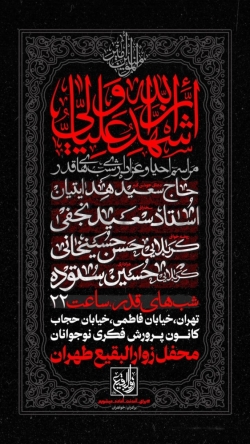 اشهد ان علیا ولی الله
مراسم احیا و عزاداری شب‌های قدر
حاج سعید هدایتیان
استاد سعید نجفی
کربلایی حسن حسینخانی
کربلایی حسین ستوده
شب‌های قدر، ساعت ۲۲
تهران، خیابان فاطمی، خیابان حجاب
کانون پرورش فکری نوجوانان
محفل زوار البقیع طهران